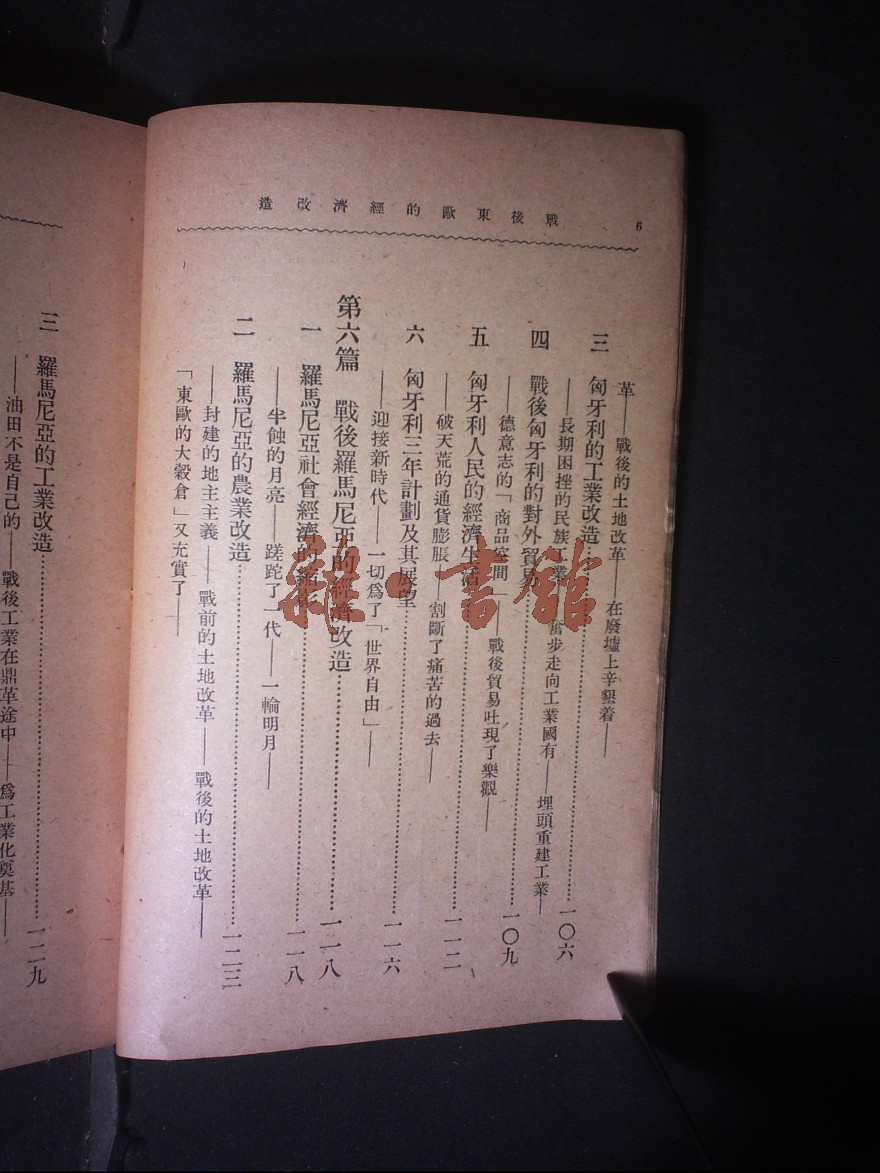 戰後東歐的經濟改造
6
革——戰後的土地改革——在廢墟上辛墾着——
三 匈牙利的工業改造……一〇六
——長期困挫的民族工業——奮步走向工業國有——埋頭重建工業——
四 戰後匈牙利的對外貿易……一〇九
——德意志的「商品空間」——戰後貿易吐現了樂觀——
五 匈牙利人民的經濟生活……一一二
——破天荒的通貨膨脹——割斷了痛苦的過去——
六 匈牙利三年計劃及其展望……一一六
——迎接新時代——一切爲了「世界自由」——
第六篇 戰後羅馬尼亞的經濟改造……一一八
一 羅馬尼亞社會經濟的縮影……一一八
——半蝕的月亮——蹉跎了一代——一輪明月——
二 羅馬尼亞的農業改造……一二三
——封建的地主主義——戰前的土地改革——戰後的土地改革——
「東歐的大穀倉」又充實了——
三 羅馬尼亞的工業改造……一二九
——油田不是自己的——戰後工業在鼎革途中——爲工業化奠基——
雜·書館